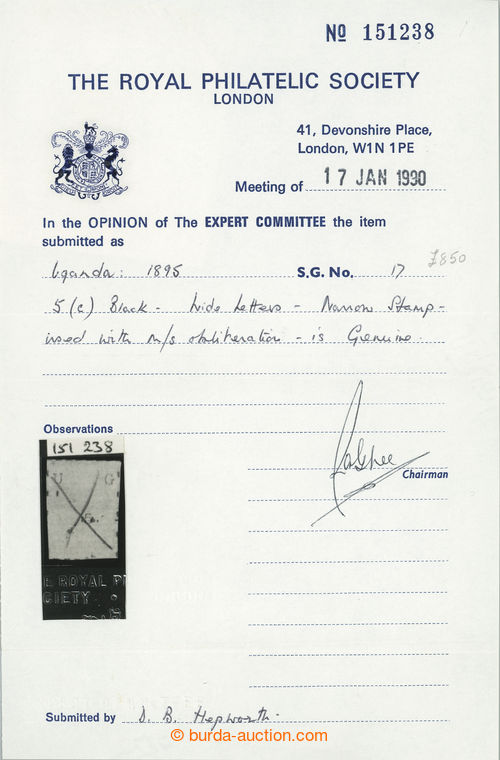 No 151238
THE ROYAL PHILATELIC SOCIETY
LONDON
41, Devonshire Place,
London, W1N 1PE
Meeting of 17 JAN 1990
In the OPINION of The EXPERT COMMITTEE the item
submitted as
Uganda: 1895 S.G. No. 17 £850
5 (c) Black - Wide Letters - Narrow Stamp -
used with m/s obliteration - is Genuine.
Observations
151 238
U G
E ROYAL P
CIETY
Chairman
Submitted by D. B. Hepworth.
© burda-auction.com